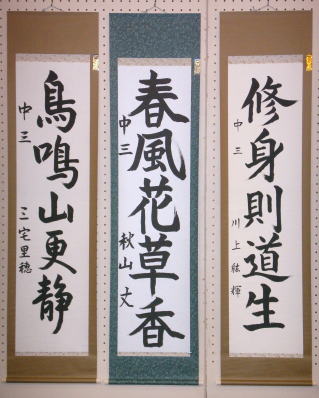 修身則道生
中三 川上紘輝
春風花草香
中三 秋山丈
鳥鳴山更静
中三 三宅里穂